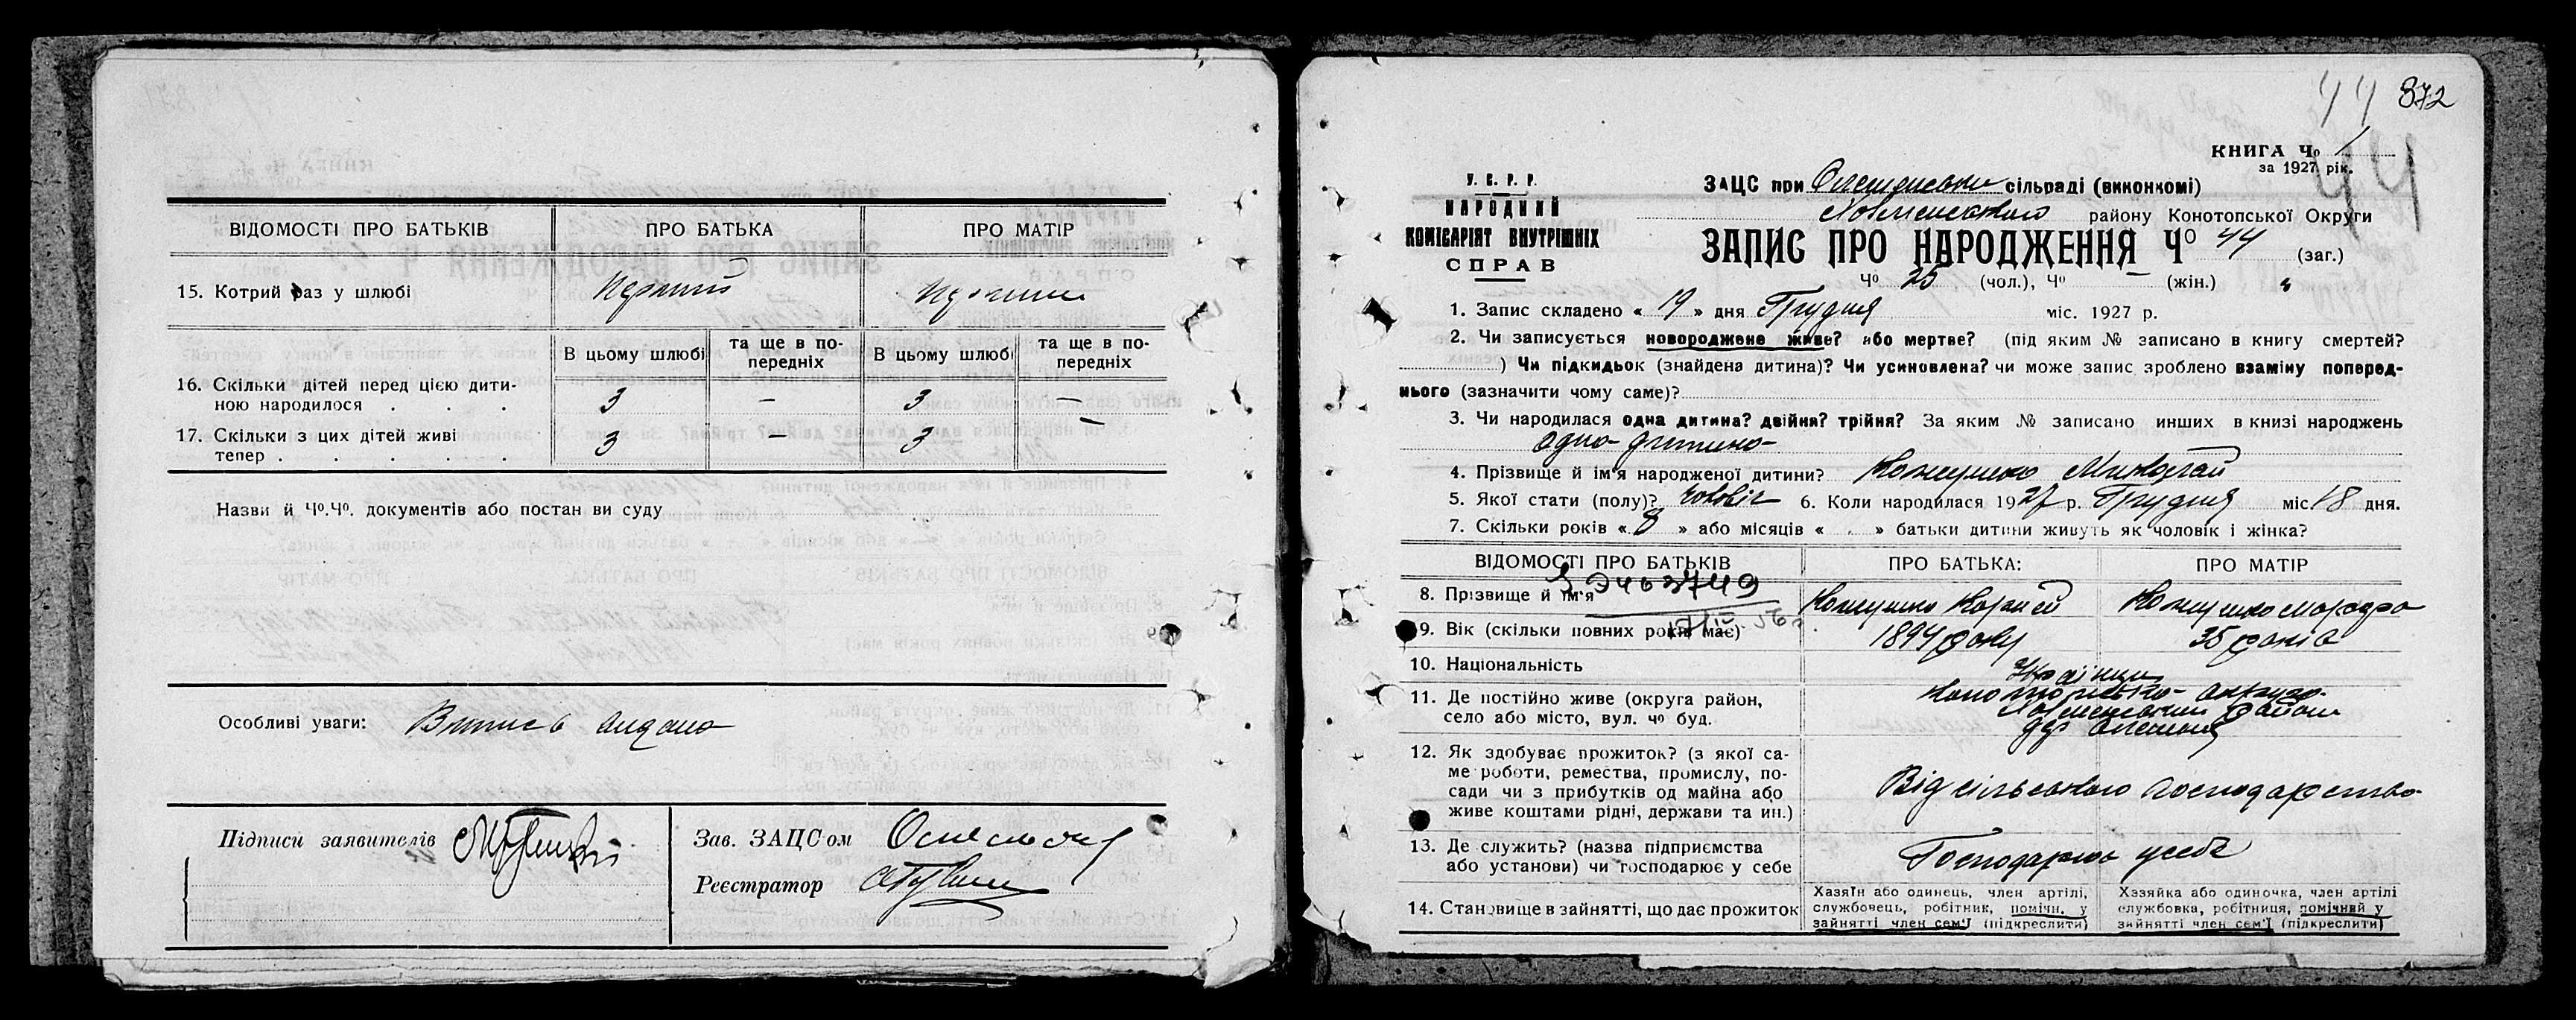 ВІДОМОСТІ ПРО БАТЬКІВ
ПРО БАТЬКА
ПРО МАТІР
15. Котрий раз у шлюбі
Перший
В цьому шлюбі
та ще в по-
передніх
В цьому шлюбі
та ще в по-
передніх
16. Скільки дітей перед цією дити-
ною народилося . . .
3 — 3 —
17. Скільки з цих дітей живі
тепер . . . . .
3 — 3 —
Назви й Чо.Чо. документів або постан ви суду
Особливі уваги:
Підписи заявителів
Зав. ЗАЦС'ом
Реєстратор
44 872
КНИГА Чо 1
за 1927 рік.
44
У. С. Р. Р.
НАРОДНИЙ
КОМІСАРІЯТ ВНУТРІШНІХ
СПРАВ
ЗАЦС при сільраді (виконкомі)
району Конотопської Округи
ЗАПИС ПРО НАРОДЖЕННЯ Чо 44 (заг.)
Чо 25 (чол.), Чо — (жін.)
1. Запис складено « 19 » дня Грудня міс. 1927 р.
2. Чи записується новороджене живе? або мертве? (під яким № записано в книгу смертей?
) Чи підкидьок (знайдена дитина)? Чи усиновлена? чи може запис зроблено взаміну поперед-
нього (зазначити чому саме)?
3. Чи народилася одна дитина? двійня? трійня? За яким № записано инших в книзі народжень
одна дитина
4. Прізвище й ім'я народженої дитини? Кожушко Миколай
5. Якої стати (полу)? чоловіч 6. Коли народилася 1927 р. Грудня міс 18 дня.
7. Скільки років « 8 » або місяців « » батьки дитини живуть як чоловік і жінка?
ВІДОМОСТІ ПРО БАТЬКІВ
ПРО БАТЬКА:
ПРО МАТІР
8. Прізвище й ім'я
Кожушко Корній
Кожушко
9. Вік (скільки повних років має)
1894 року
35 років
10. Національність
Українці
11. Де постійно живе (округа район,
село або місто, вул. чо буд.
12. Як здобуває прожиток? (з якої са-
ме роботи, ремества, промислу, по-
сади чи з прибутків од майна або
живе коштами рідні, держави та ин.)
Від сільського господарства
13. Де служить? (назва підприємства
або установи) чи господарює у себе
Господарює у себе
14. Становище в зайнятті, що дає прожиток
Хазяїн або одинець, член артілі,
службовець, робітник, помічн. у
зайнятті член сем'ї (підкреслити)
Хазяйка або одиночка, член артілі
службовка, робітниця, помічний у
зайнятті член сем'ї (підкреслити)